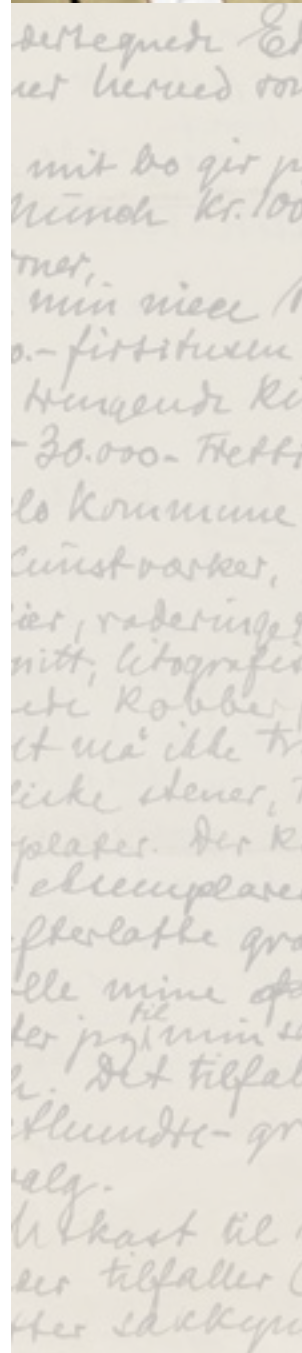 dertegnede Ed
ner herved som
mit bo gir
Munch kr. 100
roner,
min niece
0.- firtitusen
trengende
- 30.000 - Tretti
lo Kommune
Kunstværker,
ier, raderinger
nitt, litografie
ete Kobber
et må ikke tr
ficke stener,
plater. Der
eksemplarer
fterlatte gra
lle mine
ter på min
til
h. Det tilfal
thundre - gr
valg.
Utkast til
der tilfaller
tter sakkyn